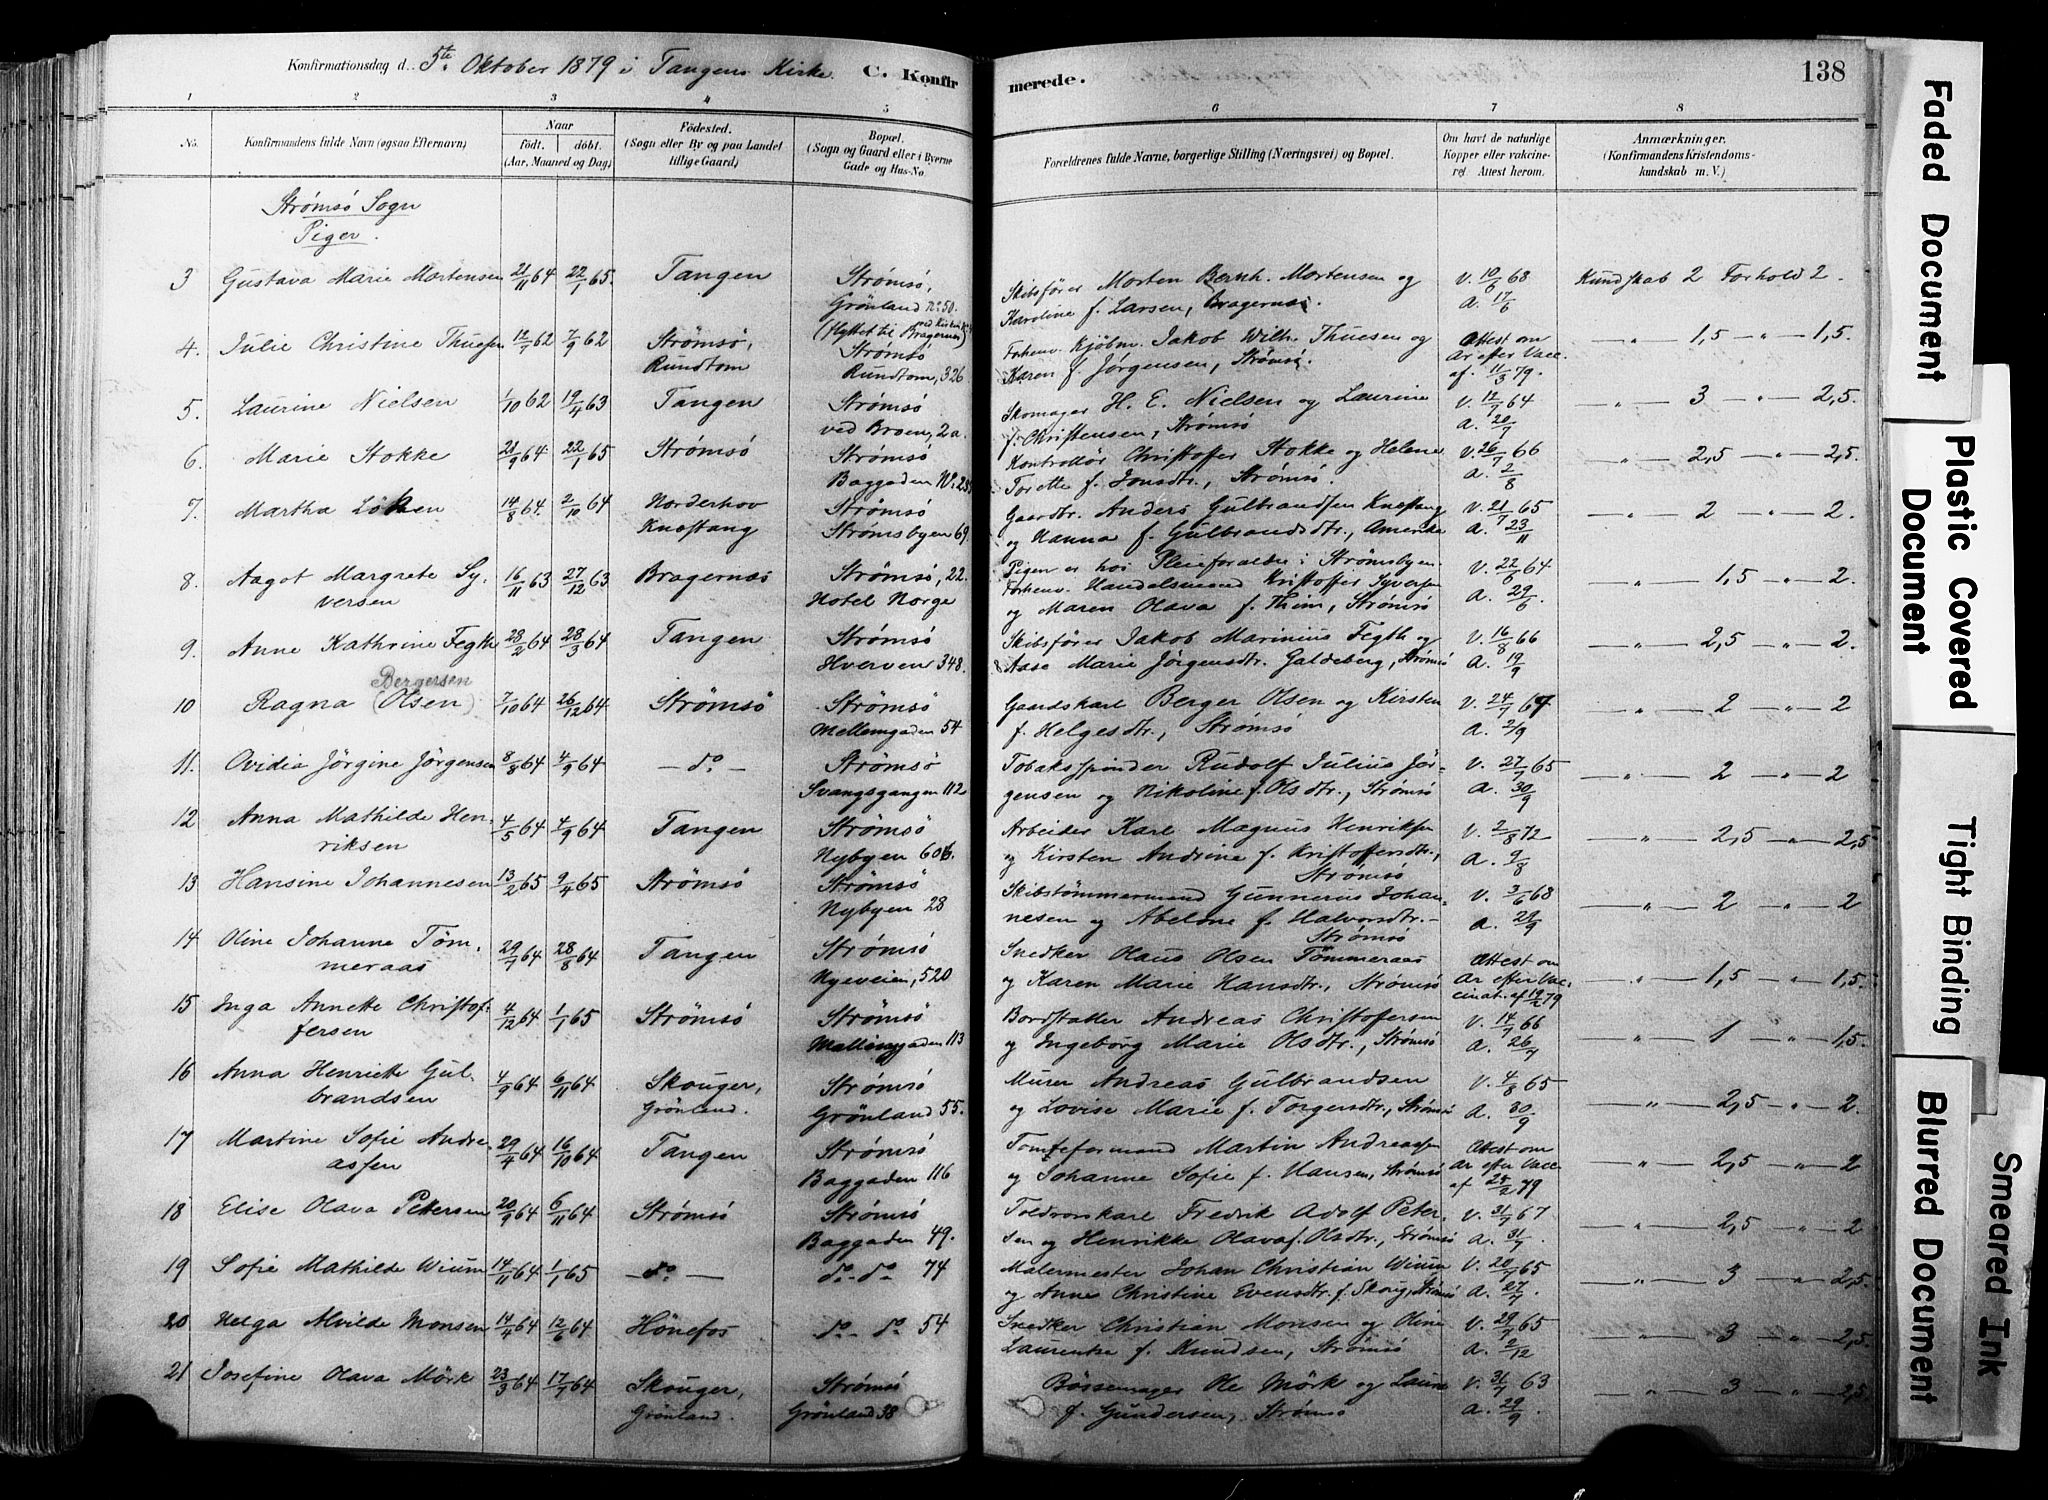 Konfirmationsdag d. 5te Oktober 1879 i Tangens Kirke. C. Konfirmerede. 138
1 2 3 4 5 6 7 8
No.
Konfirmandens fulde Navn (ogsaa Efternavn)
Naar
födt. döbt.
(Aar, Maaned og Dag)
Födested.
(Sogn eller By og paa Landet
tillige Gaard)
Bopæl.
(Sogn og Gaard eller i Byerne
Gade og Hus-No.
Forældrenes fulde Navne, borgerlige Stilling (Næringsvei) og Bopæl.
Om havt de naturlige
Kopper eller vakcine-
ret. Attest herom.
Anmærkninger.
(Konfirmandens Kristendoms-
kundskab m. V.)
Strømsö Sogn
Piger.
3 Gustava Marie Mortensen 21/11 64 22/1 65. Tangen Strømsö, Grönland No 50. (Flyttet til Bragernes)
Skibsförer Morten Bernh. Mortensen og
Karoline f. Larsen, Bragernes. V. 10/6 68 A. 17/6 Kundskab 2 Forhold 2.
4. Julie Christine Thuesen 12/7 62 7/9 62 Strømsö, Rundtom Strømsö Rundtom, 326
Forhenv. Kjöbm. Jakob Wilh. Thuesen og
Karen f. Jörgensen, Strømsö. Attest om Ar efter Vacc. af. 11/3 79. -"- 1,5 -"- 1,5.
5. Laurine Nielsen 1/10 62 19/4 63 Tangen Strømsö ved Broen, 2a.
Skomager H. E. Nielsen og Laurine
f. Christensen, Strømsö V. 12/7 64 A. 20/7 -"- 3 -"- 2,5.
6. Marie Stokke 21/9 64 22/1 65 Strømsö Strømsö Baggaden No.
Kontrollör Christoffer Stokke og Helene
Torette f. Jonsdtr., Strømsö. V. 26/7 66 A. 2/8 -"- 2,5 -"- 2,5.
7. Martha Löken 14/8 64. 2/10 64 Norderhov Knestang Strømsö Strømsbyen 69.
Gaardbr. Anders Gulbrandsen Knestang
og Hanna f. Gulbrandsdtr., Amerika V. 21/7 65 A. 23/11 -"- 2 -"- 2.
Pigen er hos Pleieforældre i Strömsbyen.
8. Aagot Margrete Sy-
versen 16/11 63 27/12 63 Bragernæs Strømsö, 22. Hotel Norge
Forhenv. Handelsmand Kristoffer Syversen
og Maren Olava f. Thim, Strømsö V. 22/6 64 A. 29/6. -"- 1,5 -"- 2.
9. Anne Kathrine Fegth 28/2 64 28/3 64 Tangen Strømsö Hverven 348.
Skibsförer Jakob Marinius Fegth og
Aase Marie Jörgensdtr. Galdeberg, Strømsö V. 16/8 66 A. 19/9 -"- 2,5 -"- 2.
Bergersen
10 Ragna (Olsen) 7/10 64 26/12 64 Strømsö Strømsö Mellemgaden 54
Gaardskarl Berger Olsen og Kirsten
f. Helgesdtr., Strømsö V. 24/7 A. 2/9 -"- 2 -"- 2
11. Ovidia Jörgine Jörgensen 8/8 64 4/9 64 - do - Strømsö Svangsgangen 112
Tobaksspinder Rudolf Julius Jör-
gensen og Nikoline f. Olsdtr., Strømsö V. 27/7 65 A. 30/9 -"- 2 -"- 2
12 Anna Mathilde Hen-
riksen 4/5 64 4/9 64 Tangen Strømsö Nybyen 606.
Arbeider Karl Magnus Henriksen
og Kirsten Andrine f. Kristoffersdtr.,
Strømsö V. 2/8 72 A. 9/8 -"- 2,5 -"- 2,5
13 Hansine Johannesen 13/2 65 9/4 65 Strømsö Strømsö Nybyen 28
Skibstömmermand Gunnerius Johan-
nesen og Abelone f. Halvorsdtr.-
Strømsö V. 3/6 68 A. 29/9 -"- 2 -"- 2
14 Oline Johanne Töm-
meraas 29/7 64 28/8 64 Tangen Strømsö Nyeveien, 520
Snedker Olaus Olsen Tömmeraas
og Karen Marie Hansdtr., Strømsö Attest om Ar efter Vac-cinat. af 19/2 79 -"- 1,5 -"- 1,5.
15 Inga Annette Christof-
fersen 4/12 64 1/1 65 Strømsö Strømsö Mellemgaden 113
Bordstabler Andreas Christofersen
og Ingeborg Marie Olsdtr., Strømsö V. 14/7 66 A. 26/7 -"- 1 -"- 1,5.
16 Anna Henriette Gul-
brandsen 4/9 64 6/11 64 Skouger, Grönland. Strømsö Grönland 55.
Murer Andreas Gulbrandsen
og Lovise Marie f. Torgersdtr., Strømsö V. 4/8 65 A. 30/9 -"- 2,5 -"- 2.
17 Martine Sofie Andre-
assen 29/4 64 16/10 64 Tangen Strømsö Baggaden 116
Tomteformand Martin Andreassen
og Johanne Sofie f. Hansen, Strømsö Attest om Ar efter Vacc af 24/2 79 -"- 2,5 -"- 2
18 Elise Olava Pettersen 20/9 64 6/11 64 Strømsö Strømsö Baggaden 49.
Toldrorskarl Fredrik Adolf Peter-
sen og Henrikke Olava f. Olsdtr., Strømsö V. 31/7 67 A. 31/7. -"- 2,5 -"- 2
19 Sofie Mathilde Wium 14/11 64 1/1 65 - do - do - do 74
Malermester Johan Christian Wium
og Anne Christine Evensdtr. f. Skoug, Strømsö V. 20/7 65 A. 27/7 -"- 3 -"- 2,5.
20 Helga Alvilde Monsen 14/4 64 12/6 64 Hönefos do - do 54
Snedker Christian Monsen og Oline
Laurentze f. Knudsen, Strømsö V. 29/7 65 A. 2/12 -"- 3 -"- 2,5.
21 Josefine Olava Mörk 23/3 64 17/7 64 Skouger, Grönland. Strømsö Grönland 38
Bössemager Ole Mörk og Laura
f. Gundersen, Strømsö V. 31/7 63 A. 29/9. -"- 3 -"- 2,5
Faded Document
Plastic Covered Document
Tight Binding
Blurred Document
Smeared Ink